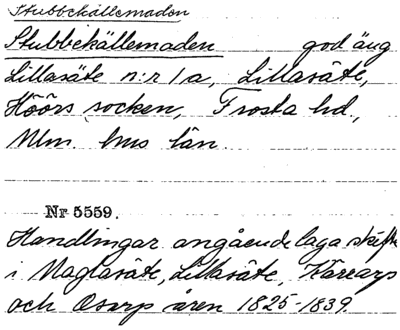 Stubbekällemaden
Stubbekällemaden god äng
Lillasäte n:r 1a, Lillasäte,
Höörs socken, Frosta hd.,
Mlm. hus län.
Nr 5559.
Handlingar angående laga skifte
i Maglasäte, Lillasäte, Kärrarp
och Osarp åren 1825-1839.